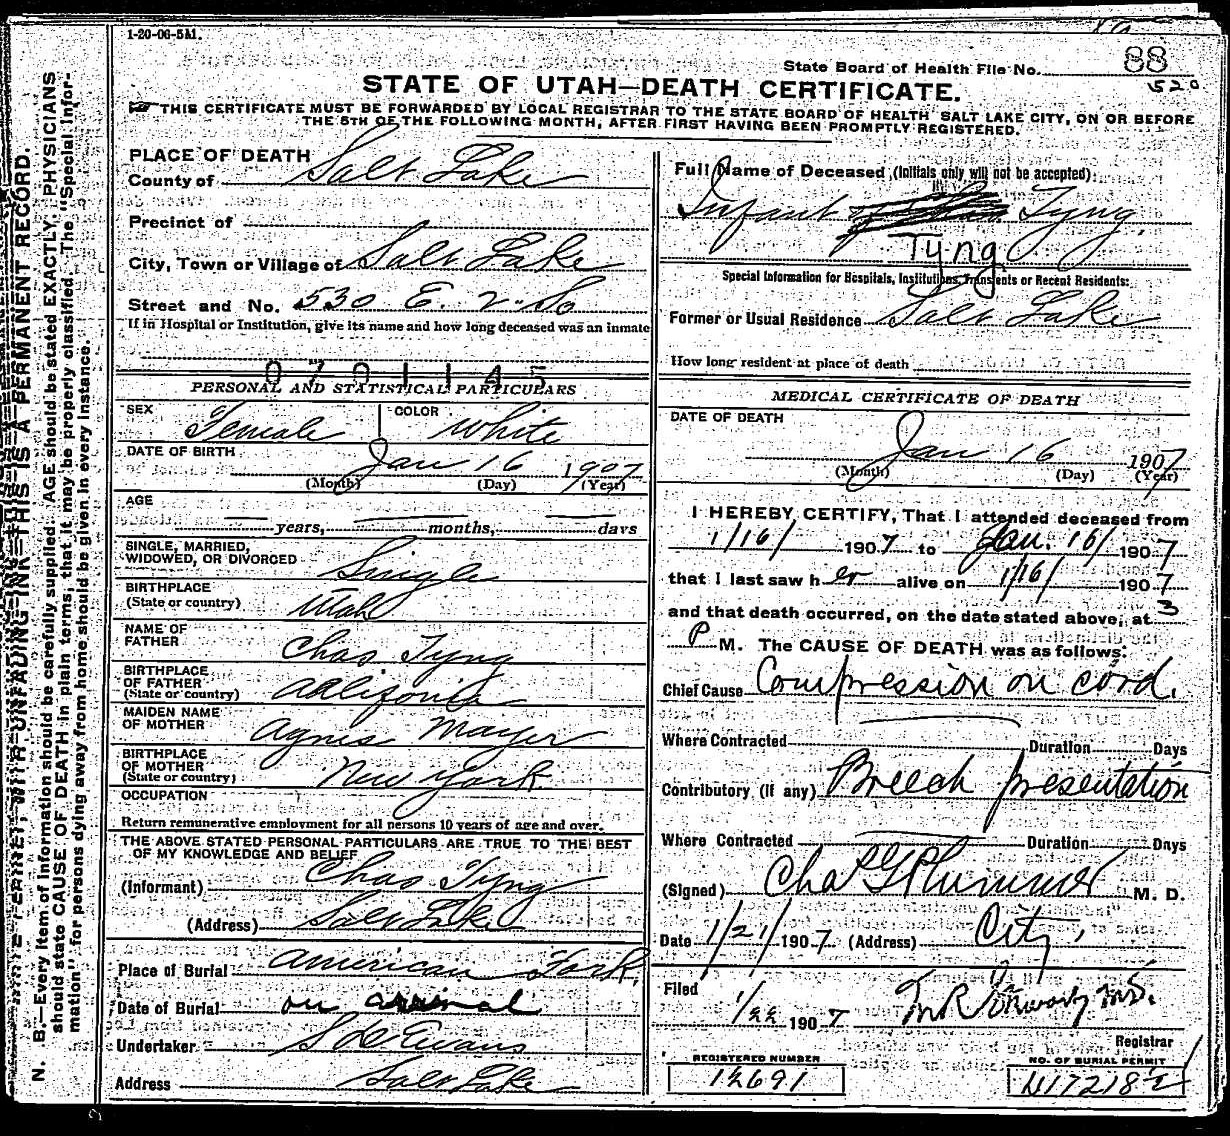 1-20-06-5M.
State Board of Health File No. 88
520
STATE OF UTAH—DEATH CERTIFICATE.
THIS CERTIFICATE MUST BE FORWARDED BY LOCAL REGISTRAR TO THE STATE BOARD OF HEALTH SALT LAKE CITY, ON OR BEFORE
THE 5TH OF THE FOLLOWING MONTH, AFTER FIRST HAVING BEEN PROMPTLY REGISTERED.
N. B.—Every item of information should be carefully supplied. AGE should be stated EXACTLY. PHYSICIANS
should state CAUSE OF DEATH in plain terms, that it may be properly classified. The "Special Infor-
mation" for persons dying away from home should be given in every instance.
WITH UNFADING INK—THIS IS A PERMANENT RECORD.
PLACE OF DEATH
County of Salt Lake
Precinct of
City, Town or Village of Salt Lake
Street and No. 530 E. 2 So
If in Hospital or Institution, give its name and how long deceased was an inmate
0701145
PERSONAL AND STATISTICAL PARTICULARS
SEX Female COLOR White
DATE OF BIRTH Jan 16 1907
(Month) (Day) (Year)
AGE
— years, — months, — days
SINGLE, MARRIED,
WIDOWED, OR DIVORCED Single
BIRTHPLACE
(State or country) Utah
NAME OF
FATHER Chas Tyng
BIRTHPLACE
OF FATHER
(State or country) California
MAIDEN NAME
OF MOTHER Agnes Mayer
BIRTHPLACE
OF MOTHER
(State or country) New York
OCCUPATION
Return remunerative employment for all persons 10 years of age and over.
THE ABOVE STATED PERSONAL PARTICULARS ARE TRUE TO THE BEST
OF MY KNOWLEDGE AND BELIEF
(Informant) Chas Tyng
(Address) Salt Lake
Place of Burial American Fork
Date of Burial on arrival
Undertaker S D Evans
Address Salt Lake
Full Name of Deceased (Initials only will not be accepted):
Infant Tyng.
Tyng
Special Information for Hospitals, Institutions, Transients or Recent Residents:
Former or Usual Residence Salt Lake
How long resident at place of death
MEDICAL CERTIFICATE OF DEATH
DATE OF DEATH
Jan 16 1907
(Month) (Day) (Year)
I HEREBY CERTIFY, That I attended deceased from
1/16/ 1907 to Jan. 16/ 1907
that I last saw her alive on 1/16/ 1907
and that death occurred, on the date stated above, at 3
P M. The CAUSE OF DEATH was as follows:
Chief Cause Compression on cord.
Where Contracted Duration Days
Contributory (if any) Breech presentation
Where Contracted Duration Days
(Signed) Chas G Plummer M. D.
Date 1/21/ 1907 (Address) City,
Filed
1/22 1907
Registrar
REGISTERED NUMBER
12691
NO. OF BURIAL PERMIT